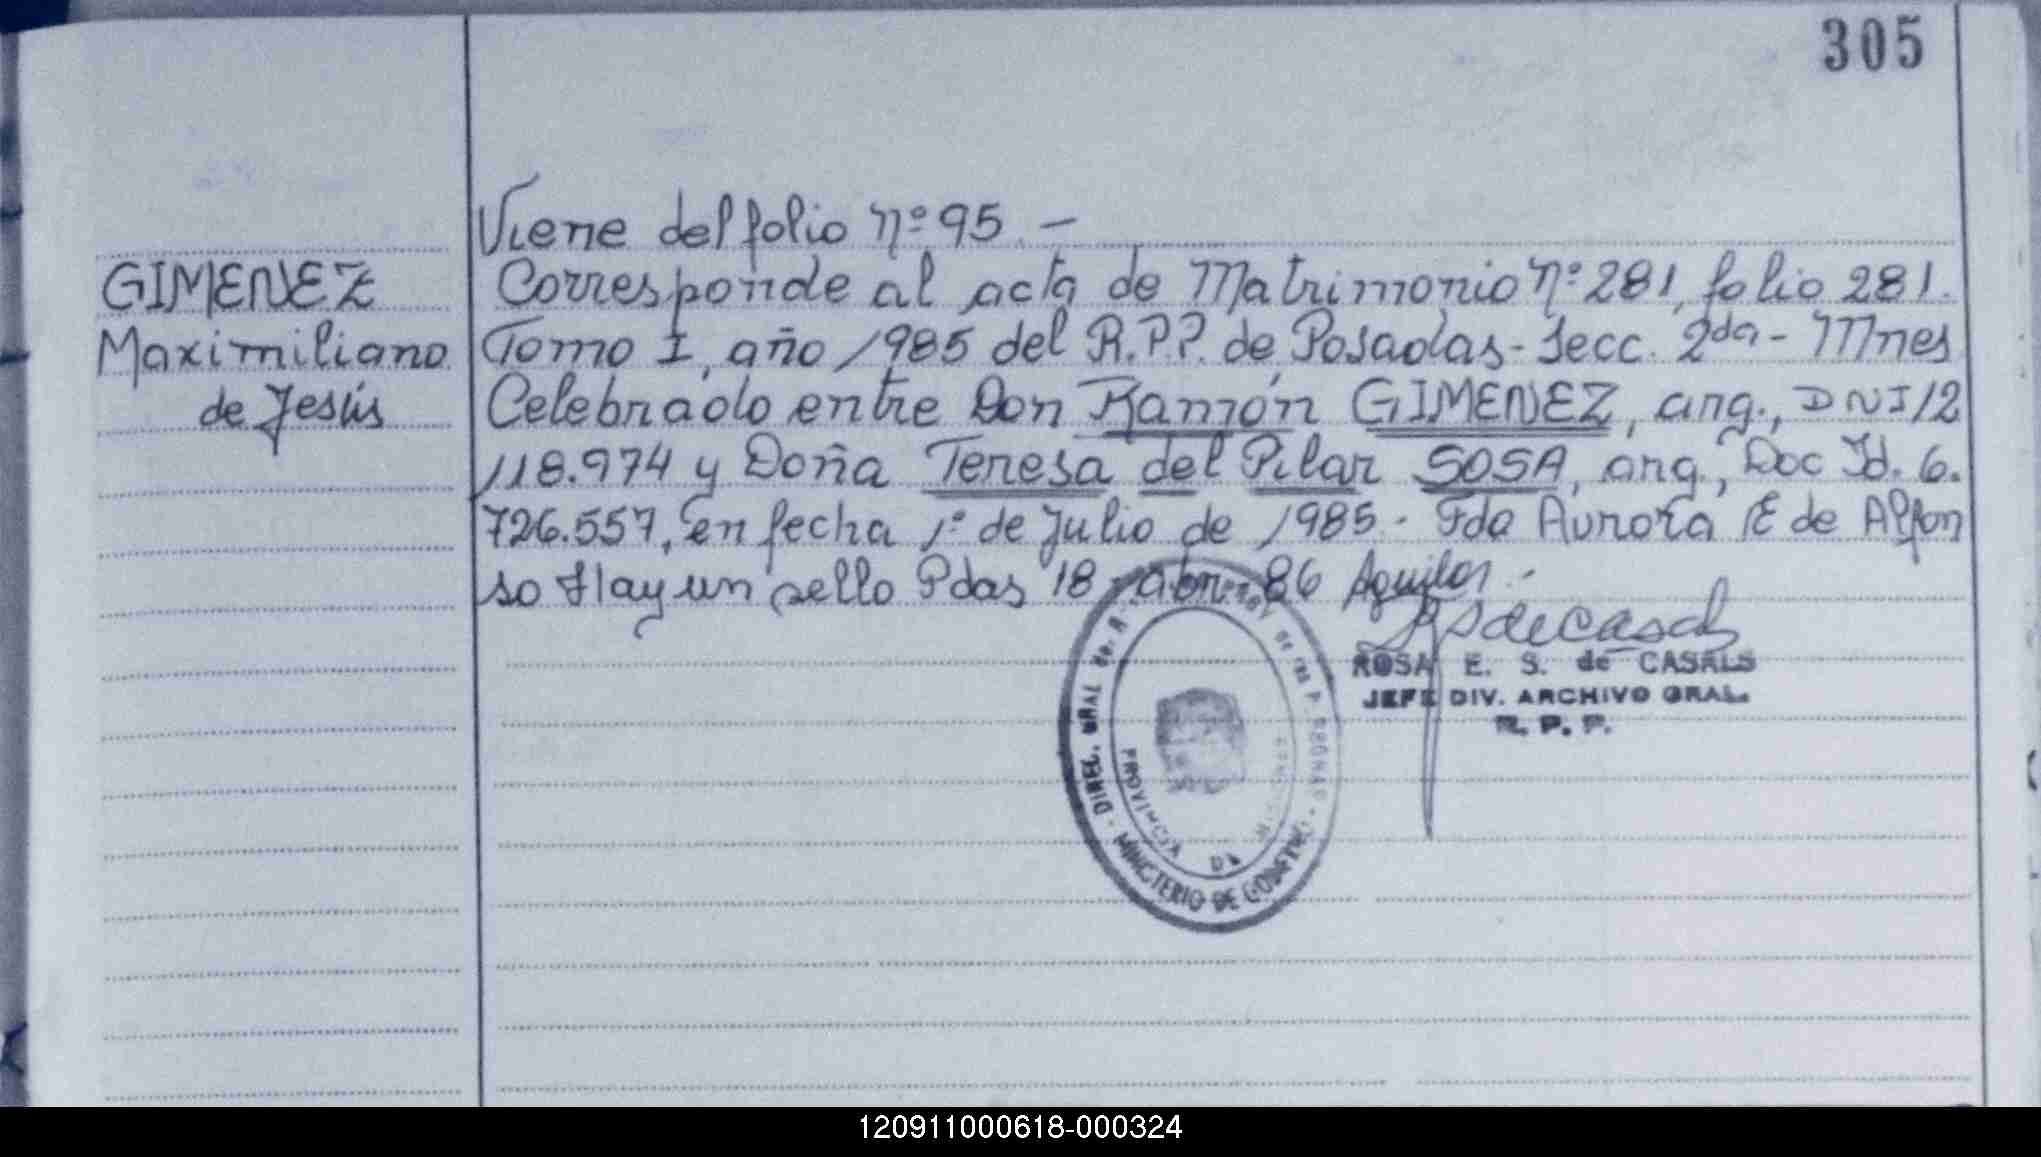 305
Viene del folio nº 95. -
GIMENEZ
Maximiliano
de Jesús
Corresponde al acta de Matrimonio nº 281, folio 281.
Tomo I, año 1985 del R.P.P. de Posadas - Secc. 2da - Mnes
Celebrado entre Don Ramón GIMENEZ, arg., DNI 12
118.974 y Doña Teresa del Pilar SOSA, arg., Doc Id. 6.
726.557, en fecha 1º de Julio de 1985. - Fdo Aurora E de Alfon
so Hay un sello Pdas 18 - abr - 86 Aguilar. -
ROSA E. S. de CASALS
JEFE DIV. ARCHIVO GRAL.
R. P. P.
GRAL de
MINISTERIO DE GOBIERNO
PROVINCIA DE
120911000618-000324